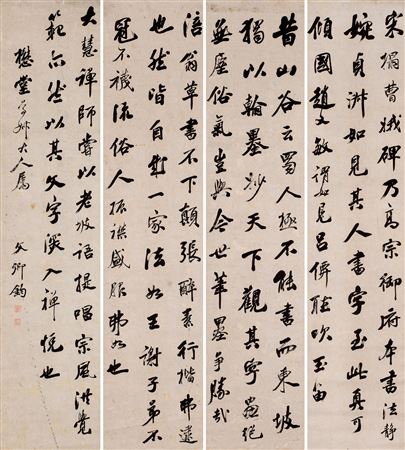 宋搨曹娥碑乃高宗御府本書法静
婉貞淑如見其人書字至此真可
傾國趙文敏謂如見呂僊聽吹玉笛
昔山谷云蜀人極不能書而東坡
獨以翰墨妙天下觀其字畫絕
無塵俗氣豈與今世筆墨爭勝哉
涪翁草書不下顛張醉素行楷弗逮
也然皆自成一家法如王謝子弟不
冠不襪流俗人振襟盛服弗如也
大慧禪師嘗以老坡語提唱宗風洪覺
範亦然以其文字深入禪悦也
懋堂大人屬
文卿鈞